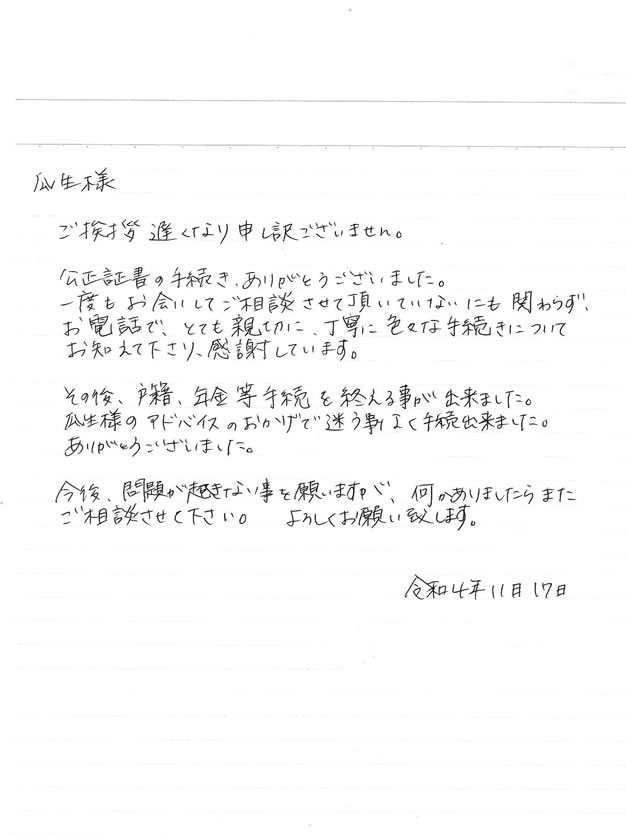 瓜生様
ご挨拶遅くなり申し訳ございません。
公正証書の手続き、ありがとうございました。
一度もお会いしてご相談させて頂いていないにも関わらず、
お電話で、とても親切に、丁寧に色々な手続きについて
お知えて下さり、感謝しています。
その後、戸籍、年金等手続を終える事が出来ました。
瓜生様のアドバイスのおかげで迷う事なく手続出来ました。
ありがとうございました。
今後、問題が起きない事を願いますが、何かありましたらまた
ご相談させて下さい。 よろしくお願い致します。
令和4年11月17日